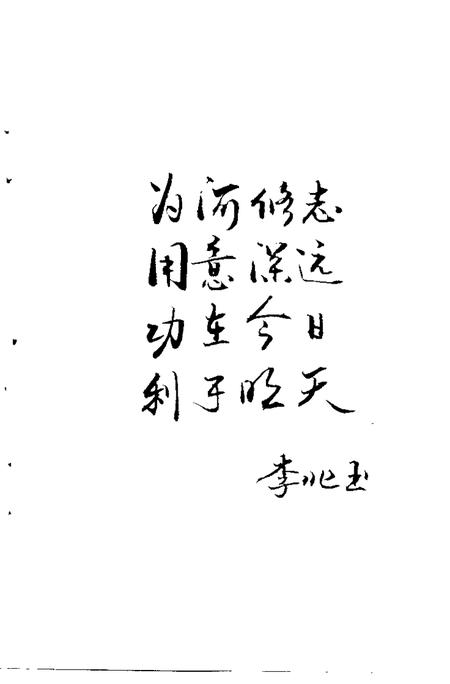 为河修志
用意深远
功在今日
利于明天
李兆玉